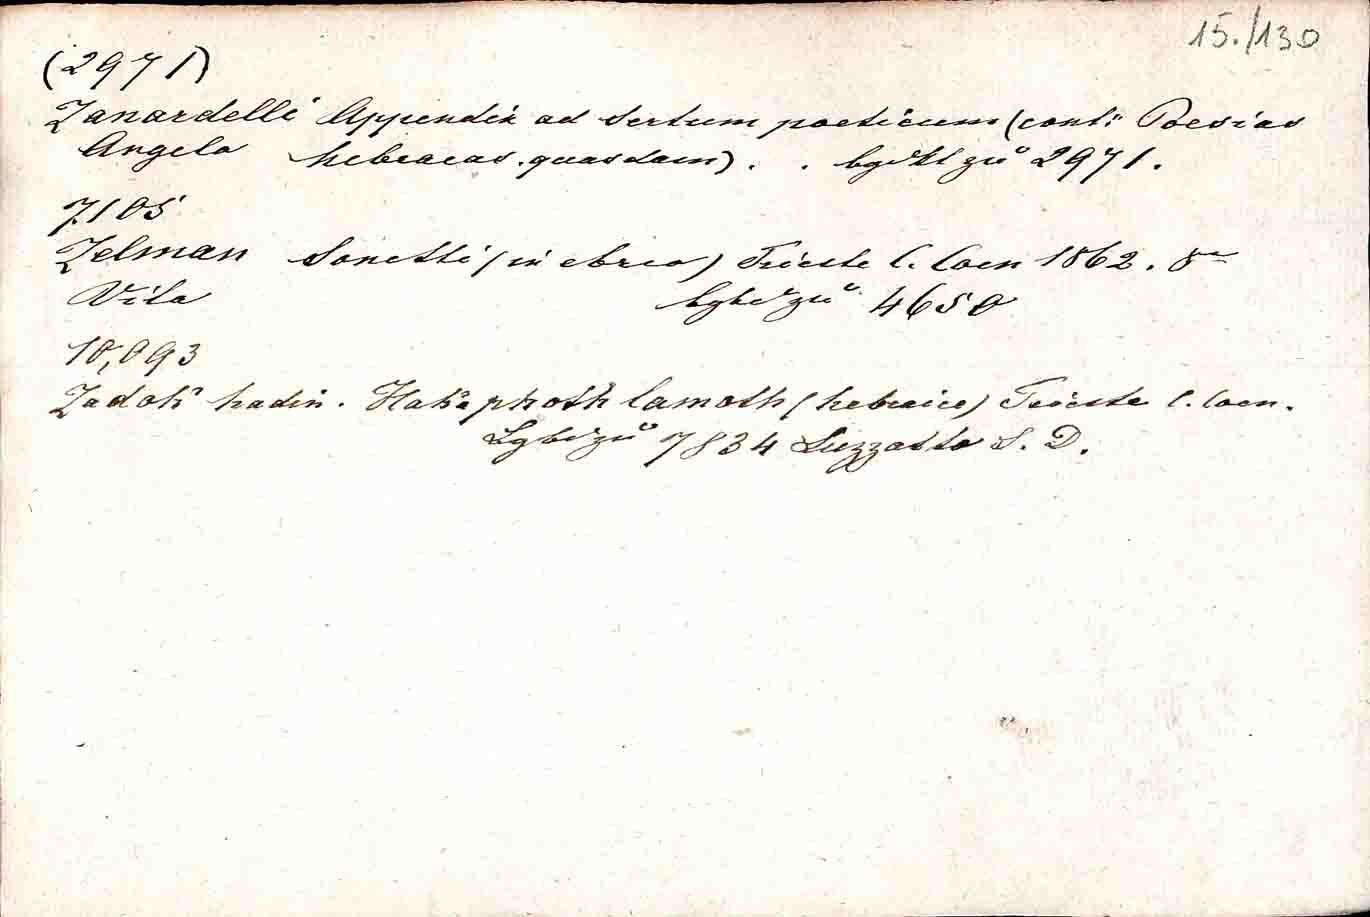 15./130
(2971)
Zanardelli Appendix ad Sertum poeticum (cont: Poesias
Angelo hebraicas quasdam). . bgbd zu 2971.
7105
Zelman Sonetti (in ebreo) Trieste C. Coen 1862. 8°
Vita bgbd zu 4650
10,093
Zadok hadin. Hakaphoth lamoth (hebraice) Trieste C. Coen.
bgbd zu 7834 Luzzatto S. D.